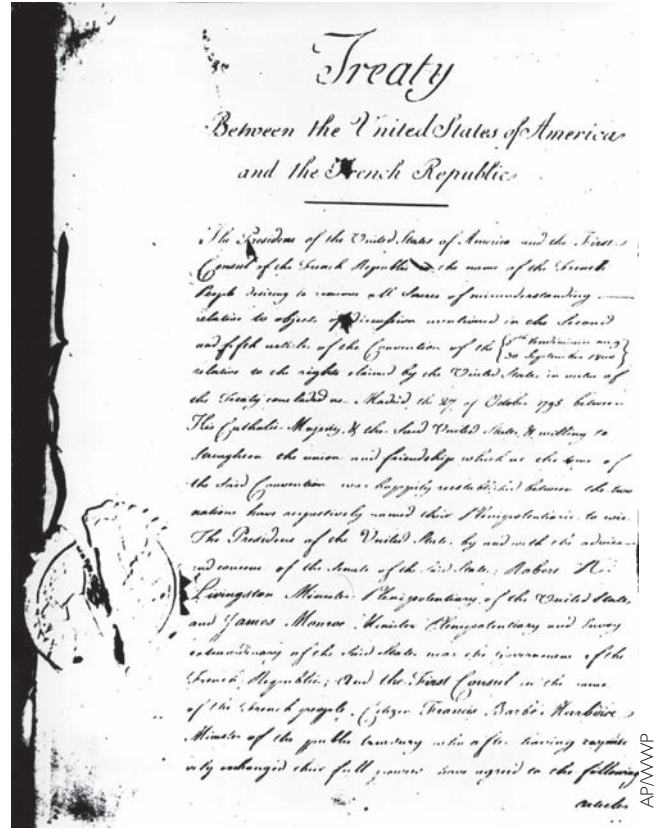 Treaty
Between the United States of America
and the French Republic
The President of the United States of America and the First
Consul of the French Republic in the name of the French
People desiring to remove all Source of misunderstanding
relative to objects of discussion mentioned in the Second
and fifth articles of the Convention of the 30 September 1800
relative to the rights claimed by the United States in virtue of
the Treaty concluded at Madrid the 27 of October 1795 between
His Catholic Majesty, & the Said United States, & willing to
Strengthen the union and friendship which at the time of
the Said Convention was happily reestablished between the two
nations have respectively named their Plenipotentiaries to wit
The President of the United States, by and with the advice
and consent of the Senate of the said States; Robert R.
Livingston Minister Plenipotentiary of the United States
and James Monroe Minister Plenipotentiary and Envoy
extraordinary of the Said States near the Government of the
French Republic; And the First Consul in the name
of the French people, Citizen Francis Barbé Marbois
Minister of the public treasury who after having respecti
vely exchanged their full powers have agreed to the following
articles
AP/WWP